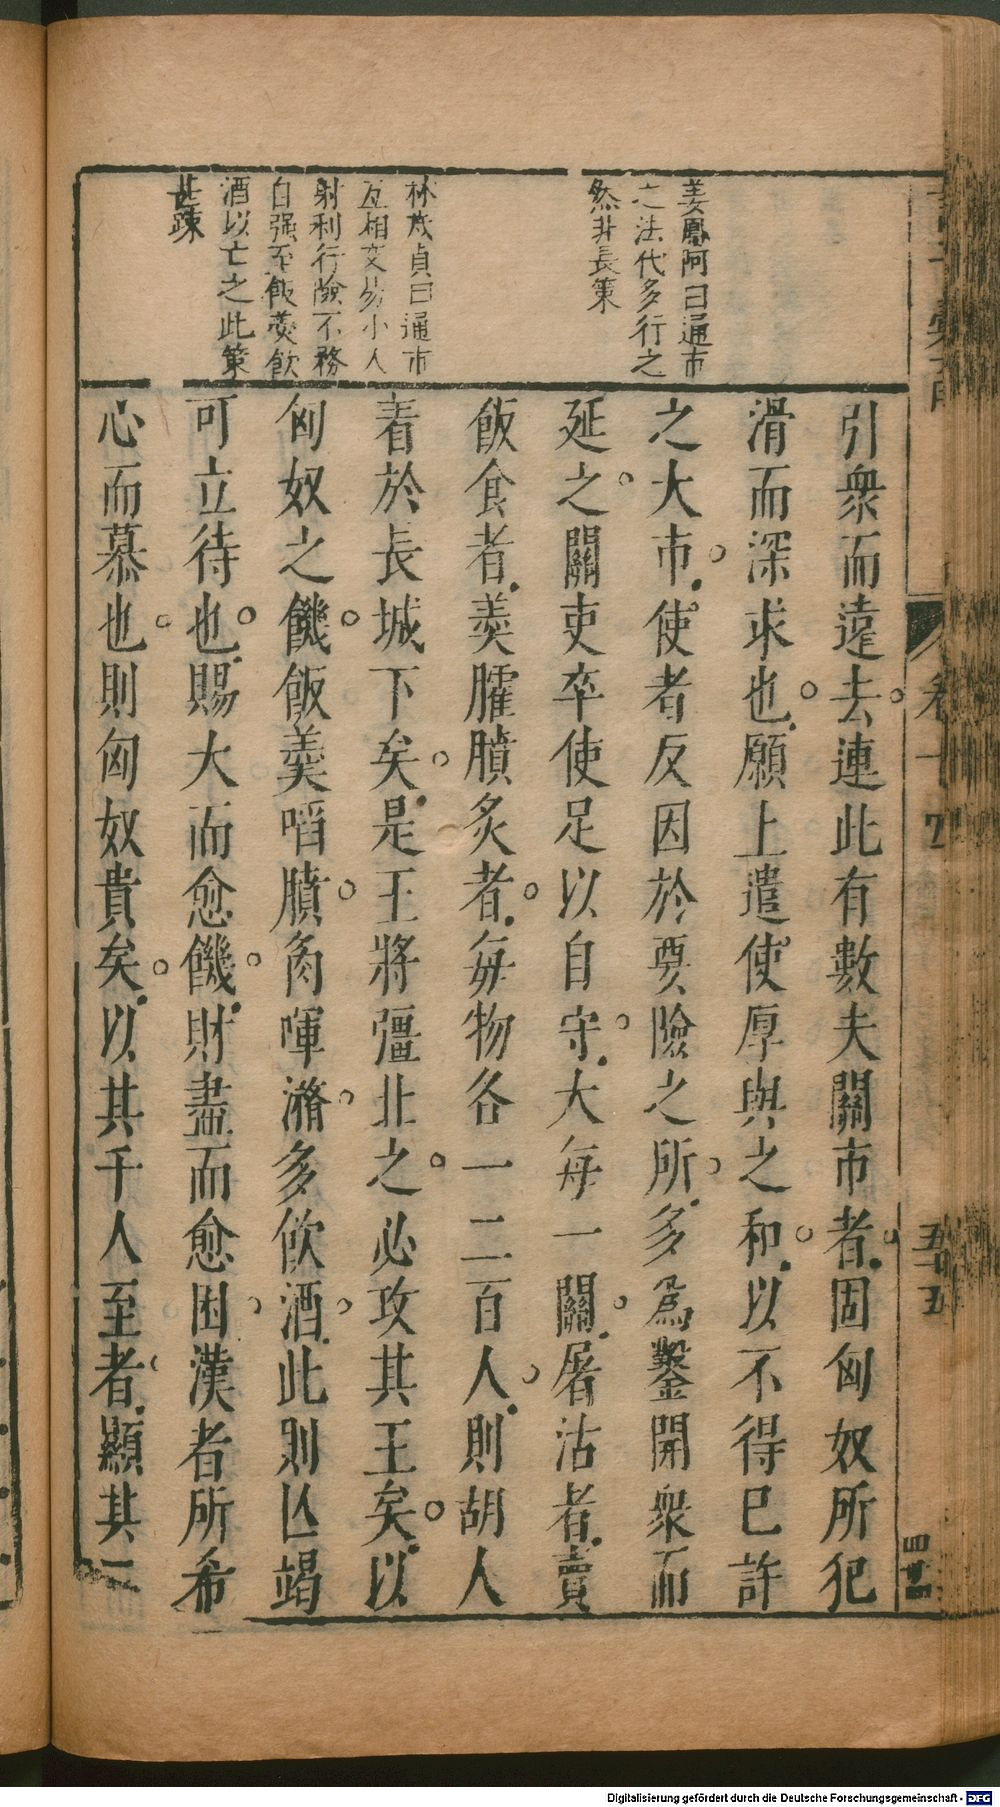 姜鳳阿曰通市
之法代多行之
然非長策
林茂貞曰通市
互相交易小人
射利行險不務
自强至飯羮飮
酒以亡之此策
甚踈
引衆而遠去連此有數夫關市者固匈奴所犯
滑而深求也願上遣使厚與之和以不得已許
之大市使者反因於要險之所多爲鑿開衆而
延之關吏卒使足以自守大每一關屠沽者賣
飯食者羮臛膹炙者每物各一二百人則胡人
着於長城下矣是王將彊北之必攻其王矣以
匈奴之饑飯羮啗膹𦚾喗潃多飮酒此則亾竭
可立待也賜大而愈饑財盡而愈困漢者所希
心而慕也則匈奴貴矣以其千人至者顯其二
卷十
五十五
Digitalisierung gefördert durch die Deutsche Forschungsgemeinschaft - DFG